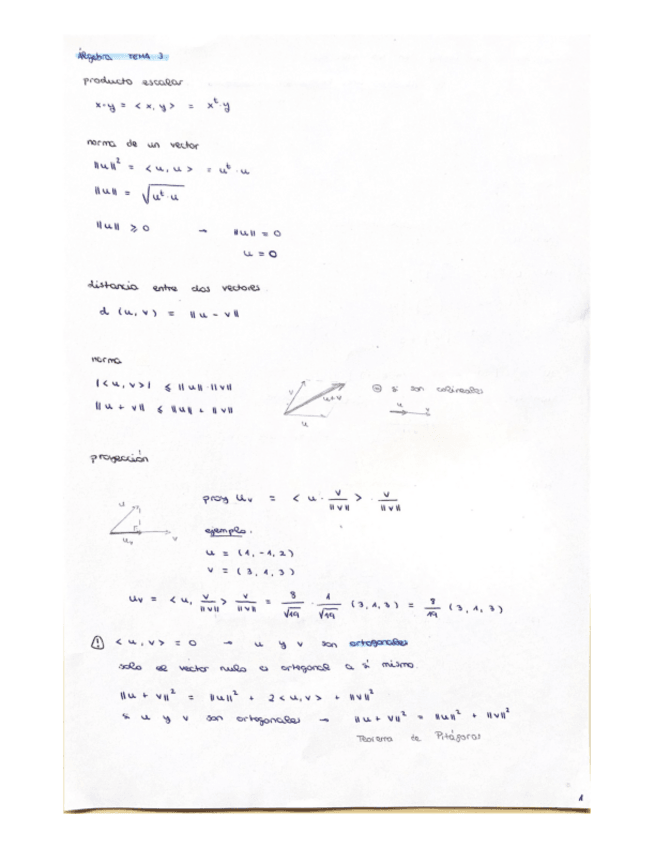 Álgebra TEMA 3
producto escalar
x·y = < x, y > = xᵗ·y
norma de un vector
||u||² = < u, u > = uᵗ·u
||u|| = √(uᵗ·u)
||u|| ≥ 0 → ||u|| = 0
u = 0
distancia entre dos vectores
d (u, v) = ||u - v||
norma
|< u, v >| ≤ ||u||·||v||
||u + v|| ≤ ||u|| + ||v||
v u+v u
= si son colineales
u v
proyección
u uᵥ v
proy uᵥ = < u · v/||v|| > · v/||v||
ejemplo.
u = (1, -1, 2)
v = (3, 1, 3)
uᵥ = < u, v/||v|| > v/||v|| = 8/√19 · 1/√19 (3, 1, 3) = 8/19 (3, 1, 3)
! < u, v > = 0 → u y v son ortogonales
solo el vector nulo es ortogonal a sí mismo.
||u + v||² = ||u||² + 2< u, v > + ||v||²
si u y v son ortogonales → ||u + v||² = ||u||² + ||v||²
Teorema de Pitágoras
1